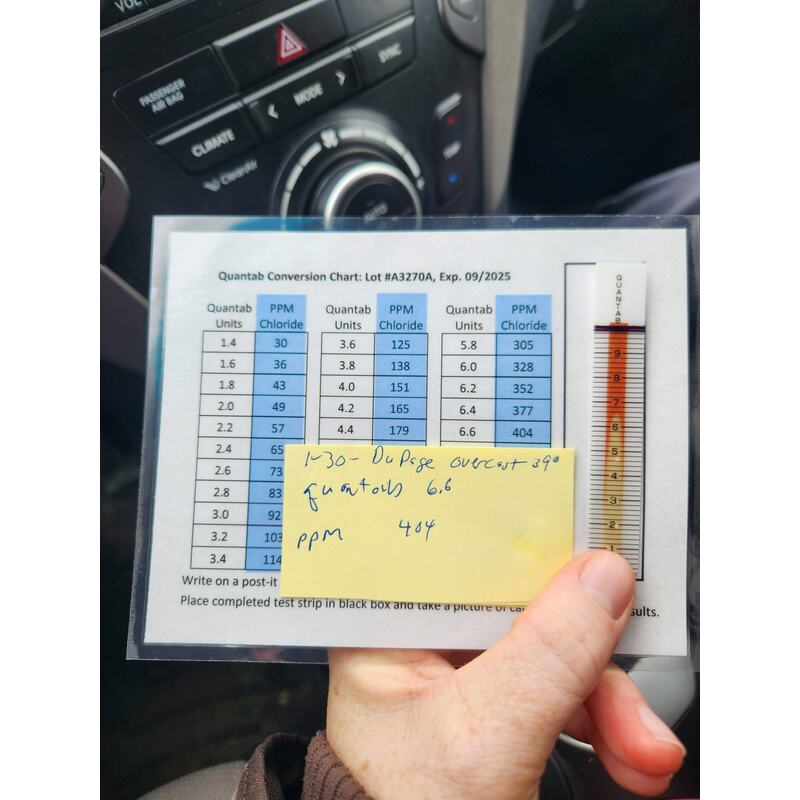 VOL
PASSENGER
AIR BAG
SYNC
< MODE >
CLIMATE
CleanAir
TEMP
AUTO
Quantab Conversion Chart: Lot #A3270A, Exp. 09/2025
Quantab Units PPM Chloride Quantab Units PPM Chloride Quantab Units PPM Chloride
1.4 30 3.6 125 5.8 305
1.6 36 3.8 138 6.0 328
1.8 43 4.0 151 6.2 352
2.0 49 4.2 165 6.4 377
2.2 57 4.4 179 6.6 404
2.4 65
2.6 73
2.8 83
3.0 92
3.2 103
3.4 114
1-30- DuPage overcast 39°
quantabs 6.6
PPM 404
Write on a post-it
Place completed test strip in black box and take a picture of
sults.
QUANTAB
9
8
7
6
5
4
3
2
1